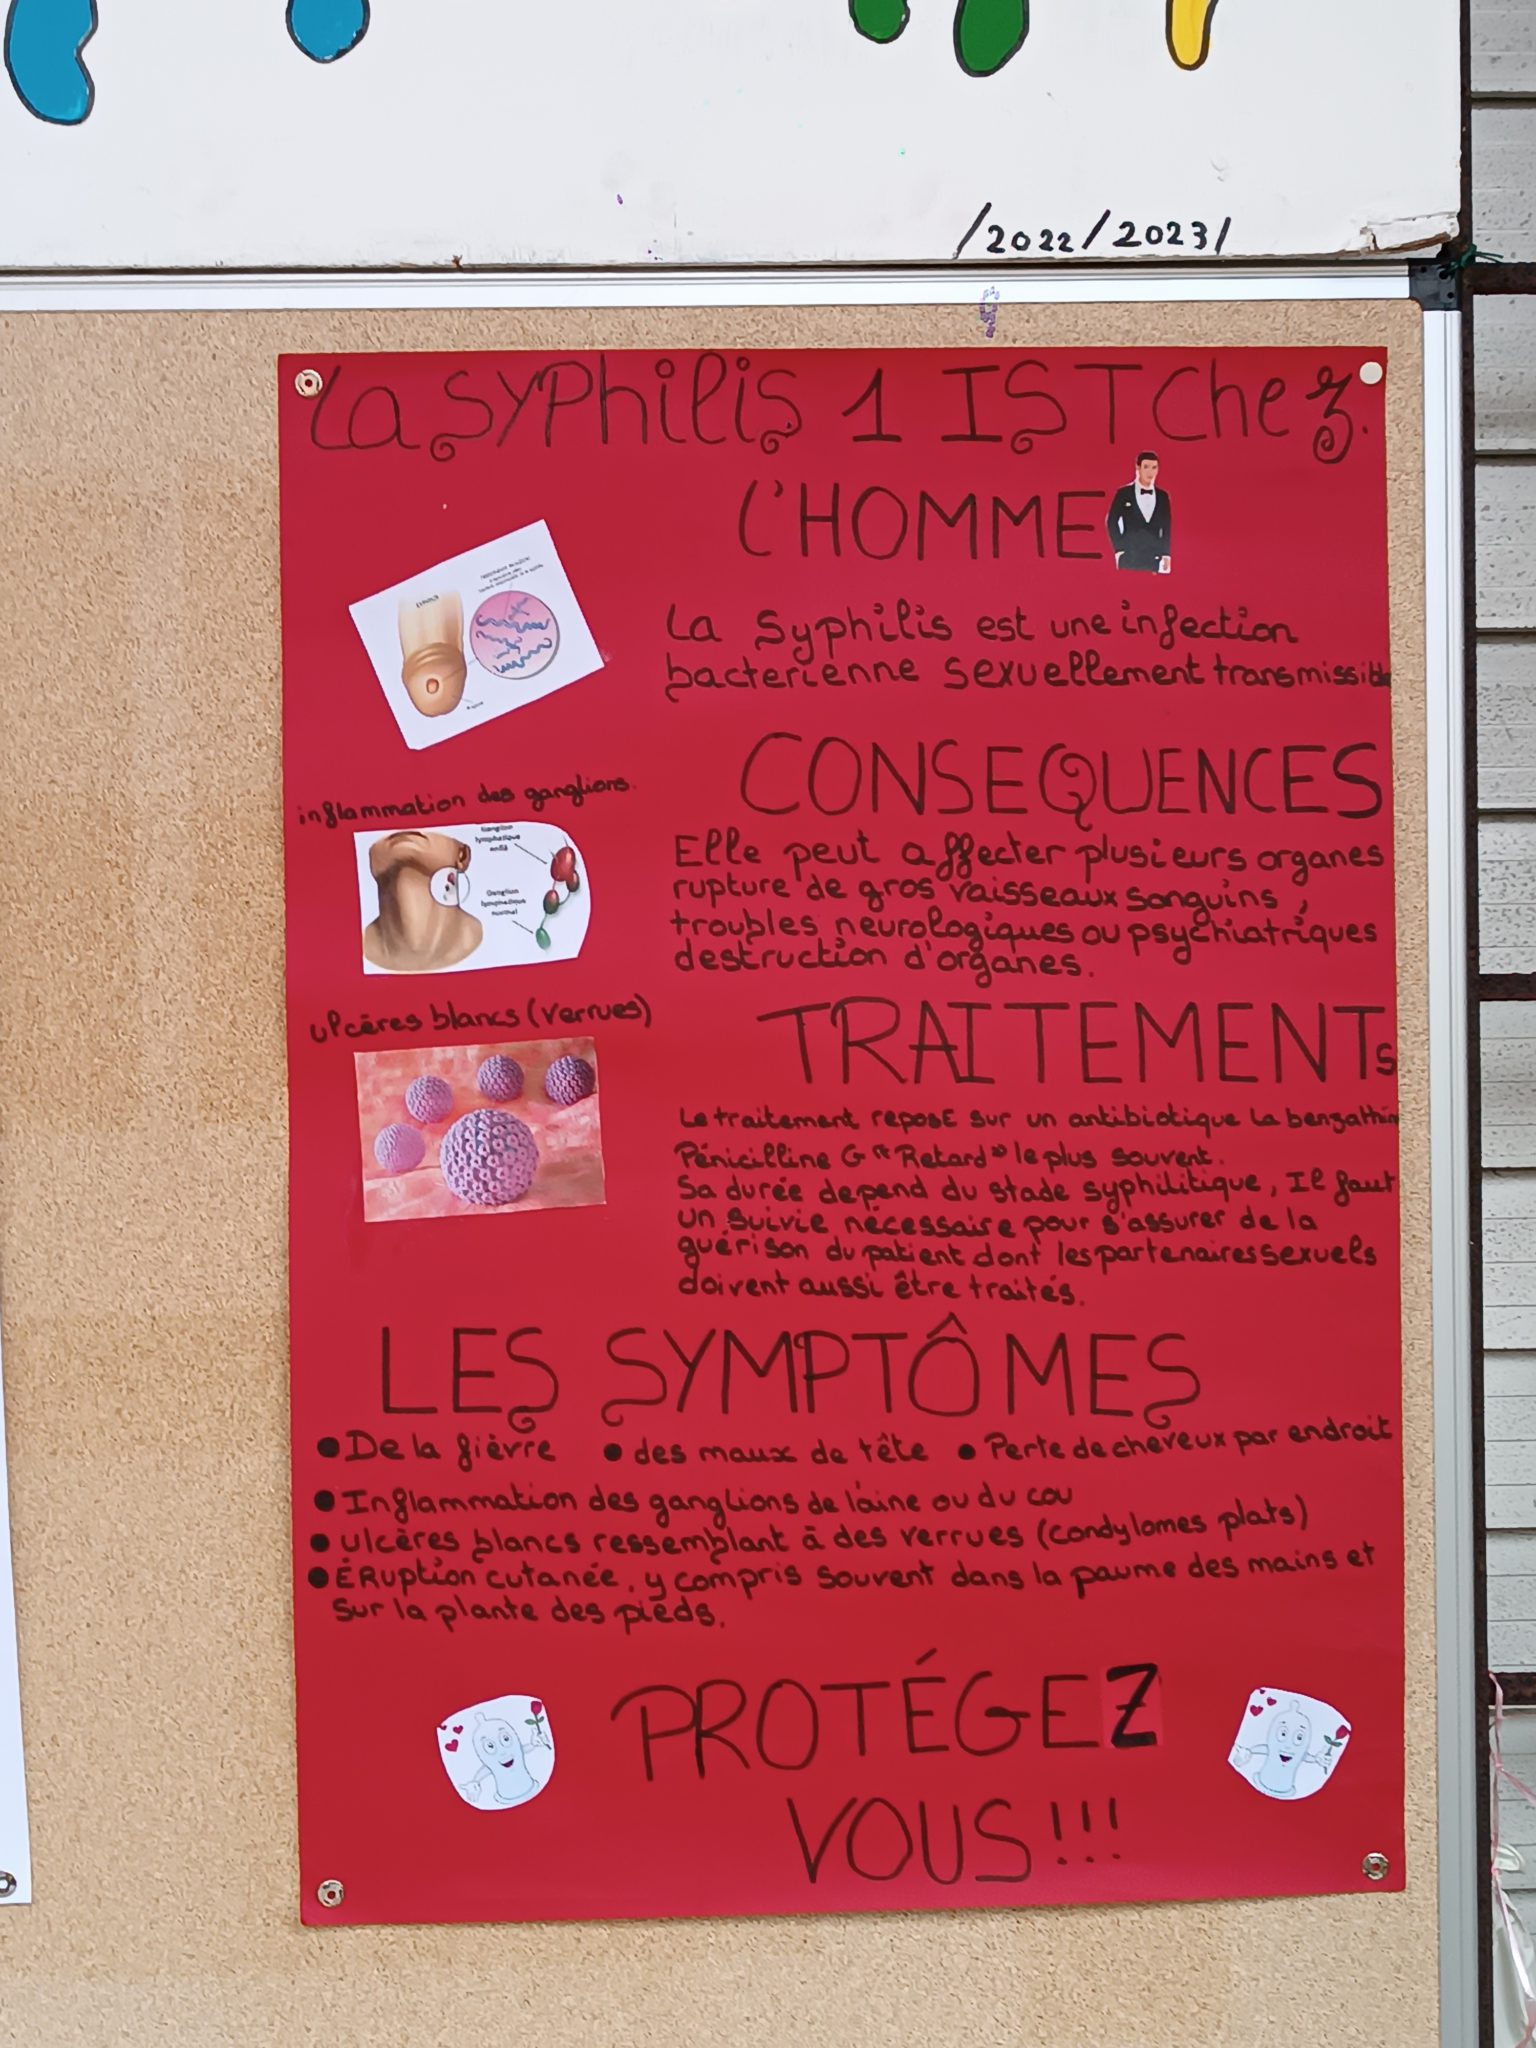 /2022/2023/
La SYPhilis 1 IST Chez
l'HOMME
La Syphilis est une infection
bacterienne sexuellement transmissible
CONSEQUENCES
Elle peut affecter plusieurs organes
rupture de gros vaisseaux sanguins,
troubles neurologiques ou psychiatriques
destruction d'organes.
TRAITEMENTs
Le traitement repose sur un antibiotique la benzathin
Pénicilline G "Retard" le plus souvent.
Sa durée depend du stade syphilitique, Il faut
un suivie nécessaire pour s'assurer de la
guérison du patient dont les partenaires sexuels
doivent aussi être traités.
inflammation des ganglions.
Ganglion
lymphatique
enflé
Ganglion
lymphatique
normal
ulcères blancs (verrues)
LES SYMPTÔMES
● De la fièvre ● des maux de tête ● Perte de cheveux par endroit
● Inflammation des ganglions de l'aine ou du cou
● ulcères blancs ressemblant à des verrues (condylomes plats)
● Éruption cutanée, y compris souvent dans la paume des mains et
sur la plante des pieds.
PROTÉGEZ
VOUS!!!